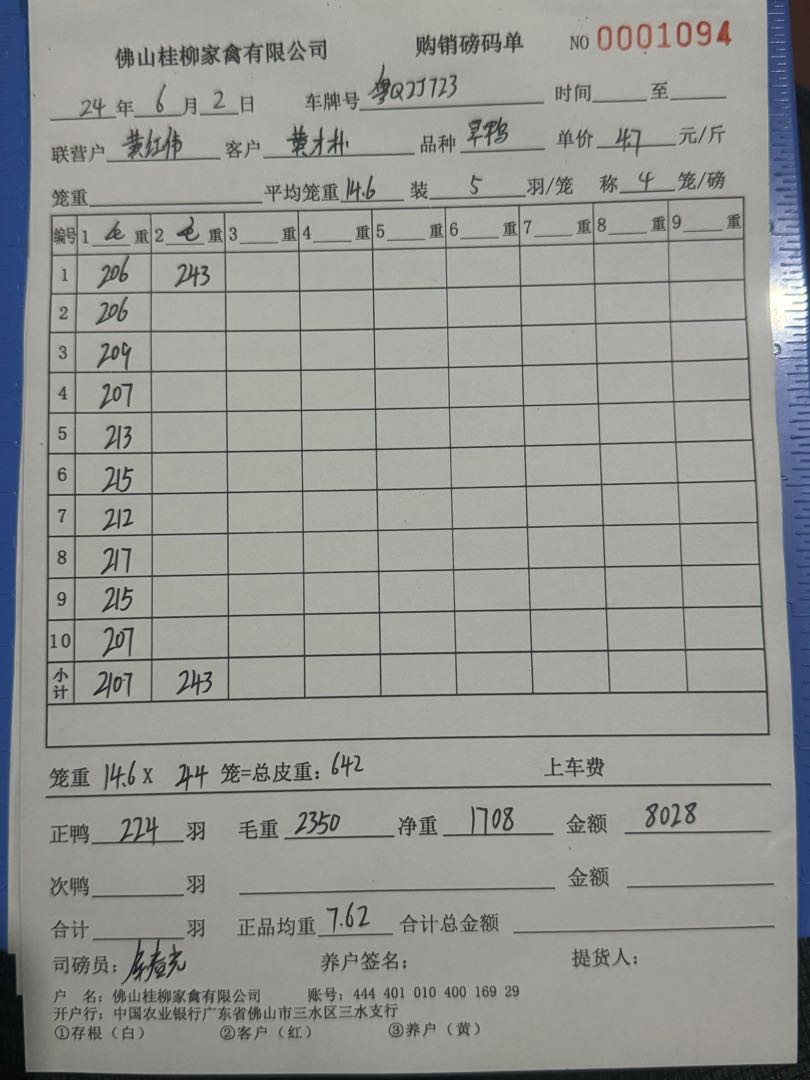 佛山桂柳家禽有限公司 购销磅码单 NO 0001094
24 年 6 月 2 日 车牌号 粤Q2J723 时间 至
联营户 黄红伟 客户 黄才朴 品种 旱鸭 单价 4.7 元/斤
笼重 平均笼重 14.6 装 5 羽/笼 称 4 笼/磅
编号 1 毛 重 2 毛 重 3 重 4 重 5 重 6 重 7 重 8 重 9 重
1 206 243
2 206
3 209
4 207
5 213
6 215
7 212
8 217
9 215
10 207
小计 2107 243
笼重 14.6 X 44 笼=总皮重: 642 上车费
正鸭 224 羽 毛重 2350 净重 1708 金额 8028
次鸭 羽 金额
合计 羽 正品均重 7.62 合计总金额
司磅员: 养户签名: 提货人:
户 名: 佛山桂柳家禽有限公司 账号: 444 401 010 400 169 29
开户行: 中国农业银行广东省佛山市三水区三水支行
①存根(白) ②客户(红) ③养户(黄)